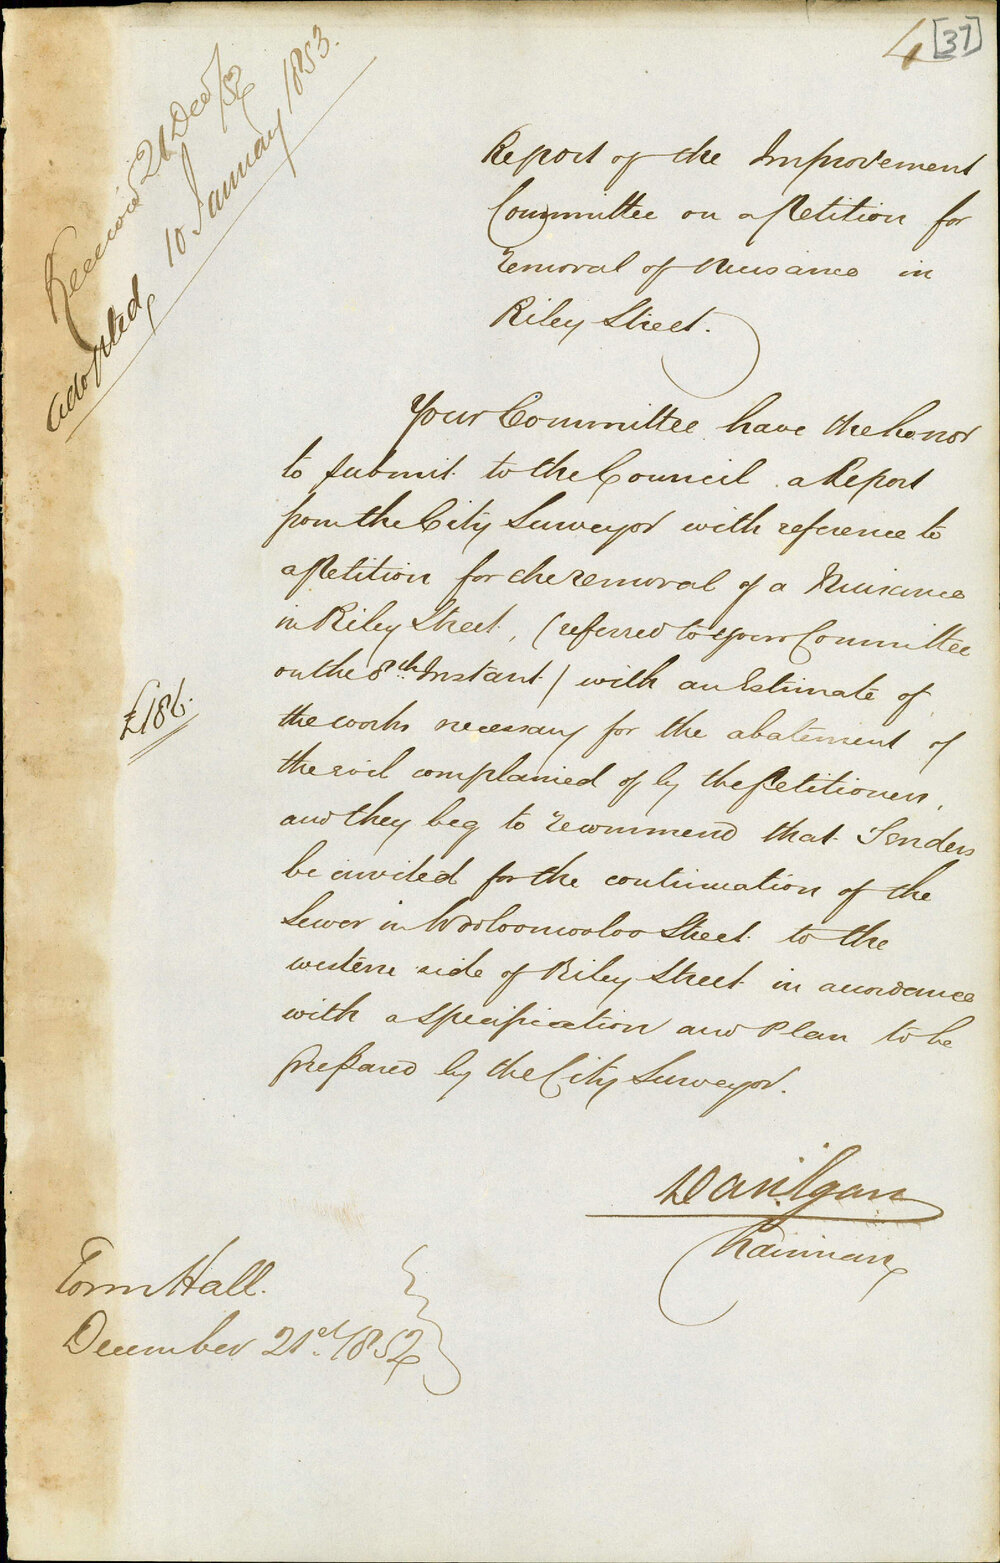 4 [37]
Received 21 Decr/52
Adopted 10 January 1853.
Report of the Improvement
Committee on a Petition for
removal of Nuisance in
Riley Street.
Your Committee have the honor
to submit to the Council a Report
from the City Surveyor with reference to
a Petition for the removal of a Nuisance
in Riley Street, (referred to your Committee
on the 8th. Instant) with an Estimate of
£186.
the works necessary for the abatement of
the evil complained of by the Petitioners,
and they beg to recommend that Tenders
be invited for the continuation of the
Sewer in Woolloomooloo Street to the
western side of Riley Street in accordance
with a Specification and Plan to be
prepared by the City Surveyor.
Dan. Egan
Chairman
Town Hall.
December 21st. 1852